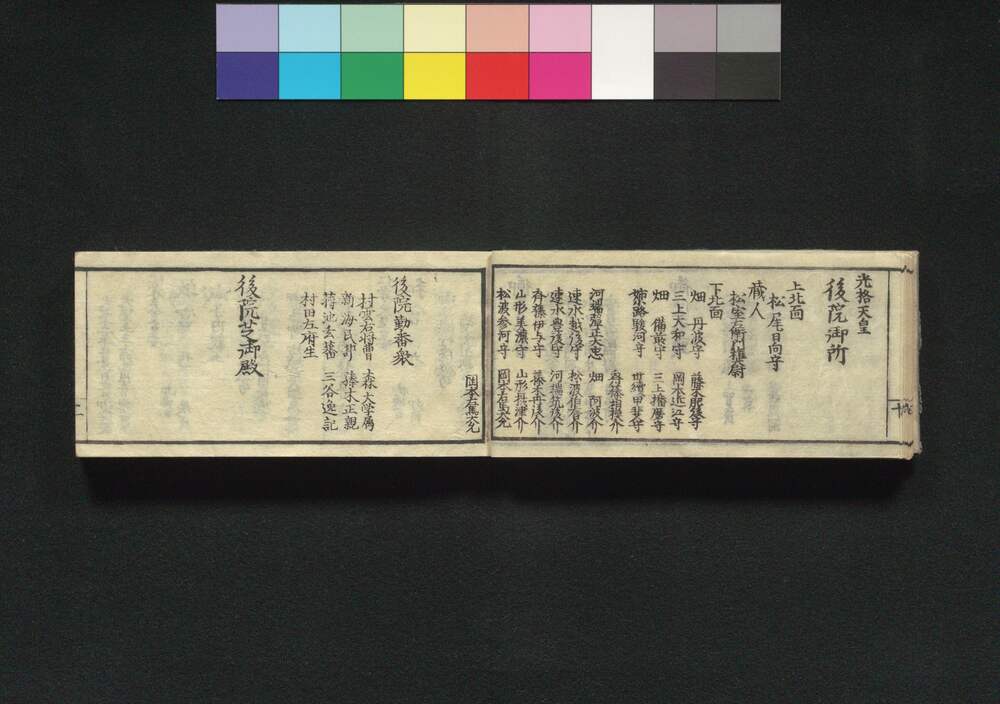 光格天皇
後院御所
上北面
松尾日向守
蔵人
松室左衛門権大尉
下北面
畑 丹波守 藤木肥後守
三上大和守 岡本近江守
畑 備前守 三上播磨守
姉路駿河守 世續甲斐守
斉藤相摸介
河端弾正大忠 畑 阿波介
速水越後守 松波伯耆介
速水豊後守 河端筑後介
斉藤伊与守 藤木丹後介
山形美濃守 山形摂津介
松波参河守 岡本右馬大允
岡本右馬大允
後院勤番衆
村雲右将曹 森大学属
新海民部 藤木正親
蒋池玄蕃 三谷逸記
村田左府生
後院芝御殿
十